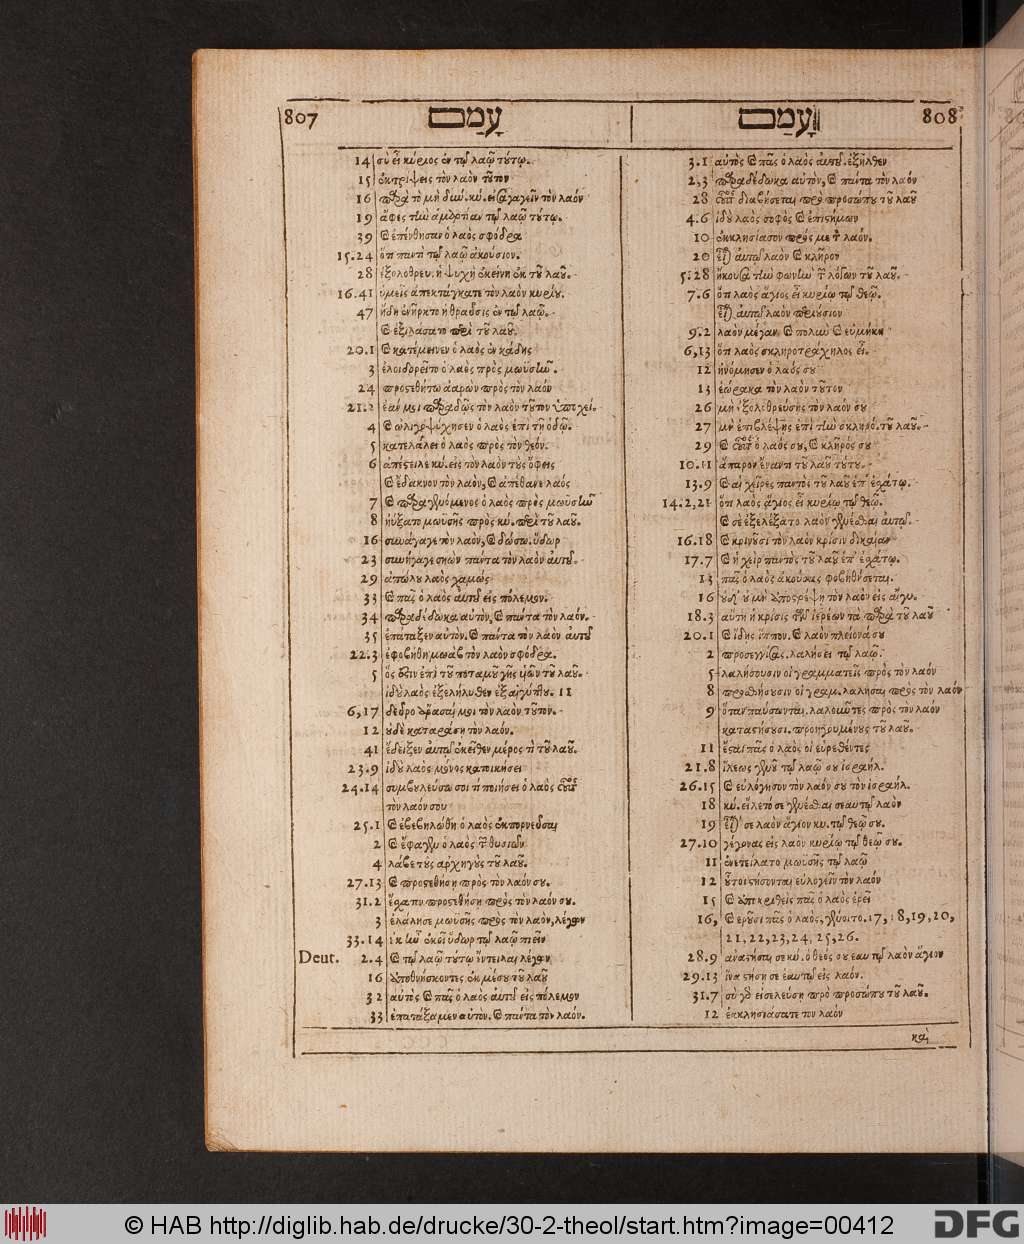 807 עָמַם
14 σὺ εἶ κύριος ἐν τῷ λαῷ τούτῳ.
15 ἐκτρίψεις τὸν λαὸν τοῦτον
16 παρὰ τὸ μὴ κύ. εἰσαγαγεῖν τὸν λαόν
19 ἄφες τὴν ἁμαρτίαν τῷ λαῷ τούτῳ.
39 καὶ ἐπένθησαν ὁ λαὸς σφόδρα
15.24 ὅτι παντὶ τῷ λαῷ ἀκούσιον.
28 ἐξολοθρευ. ἡ ψυχὴ ἐκείνη ἐκ τοῦ λαοῦ.
16.41 ὑμεῖς ἀπεκτάγκατε τὸν λαὸν κυρίου.
47 ἤδη ἐνῆρκτο ἡ θραῦσις ἐν τῷ λαῷ.
καὶ ἐξιλάσατο περὶ τοῦ λαοῦ.
20.1 καὶ κατέμεινεν ὁ λαὸς ἐν κάδης
3 ἐλοιδορεῖτο ὁ λαὸς πρὸς μωϋσῆν.
24 προσεθήτω ἀαρὼν πρὸς τὸν λαόν
21.2 ἐάν μοι παραδῷς τὸν λαὸν τοῦτον ὑποχεί.
4 καὶ ὠλιγοψύχησεν ὁ λαὸς ἐπὶ τῇ ὁδῷ.
5 κατελάλει ὁ λαὸς πρὸς τὸν θεόν.
6 ἀπέστειλε κύ. εἰς τὸν λαὸν τοὺς ὄφεις
καὶ ἔδακνον τὸν λαὸν, καὶ ἀπέθανε λαός
7 καὶ παραγενόμενος ὁ λαὸς πρὸς μωϋσῆν
8 ηὔξατο μωϋσῆς πρὸς κύ. περὶ τοῦ λαοῦ.
16 συνάγαγε τὸν λαὸν, καὶ δώσω. ὕδωρ
23 συνήγαγε σηὼν πάντα τὸν λαὸν αὐτοῦ.
29 ἀπώλου λαὸς χαμώς
33 καὶ πᾶς ὁ λαὸς αὐτοῦ εἰς πόλεμον.
34 παραδέδωκα αὐτὸν, καὶ πάντα τὸν λαόν.
35 ἐπάταξεν αὐτὸν. καὶ πάντα τὸν λαὸν αὐτοῦ
22.3 ἐφοβήθη μωὰβ τὸν λαὸν σφόδρα.
5 ὅς ἐστιν ἐπὶ τοῦ ποταμοῦ γῆς υἱῶν τοῦ λαοῦ.
ἰδοὺ λαὸς ἐξελήλυθεν ἐξ αἰγύπτου. 11
6,17 δεῦρο ἄρασαί μοι τὸν λαὸν τοῦτον.
12 οὐδὲ καταράσῃ τὸν λαόν.
41 ἔδειξεν αὐτῷ ἐκεῖθεν μέρος τὶ τοῦ λαοῦ.
23.9 ἰδοὺ λαὸς μόνος κατοικήσει
24.14 συμβουλεύσω σοι τί ποιήσει ὁ λαὸς οὗτος
τὸν λαόν σου
25.1 καὶ ἐβεβηλώθη ὁ λαὸς ἐκπορνεῦσαι
2 καὶ ἔφαγεν ὁ λαὸς τῶν θυσιῶν
4 λάβε τοὺς ἀρχηγοὺς τοῦ λαοῦ.
27.13 καὶ προστεθήσῃ πρὸς τὸν λαόν σου.
31.2 ἔσχατον προστεθήσῃ πρὸς τὸν λαόν σου.
3 ἐλάλησε μωϋσῆς πρὸς τὸν λαὸν, λέγων
33.14 οὐκ ἦν ἐκεῖ ὕδωρ τῷ λαῷ πιεῖν
Deut. 2.4 καὶ τῷ λαῷ τούτῳ ἔντειλαι λέγων
16 ἀποθνήσκοντες ἐκ μέσου τοῦ λαοῦ
32 αὐτὸς καὶ πᾶς ὁ λαὸς αὐτοῦ εἰς πόλεμον
33 ἐπατάξαμεν αὐτὸν. καὶ πάντα τὸν λαόν.
עָמַם 808
3.1 αὐτὸς καὶ πᾶς ὁ λαὸς αὐτοῦ. ἐξῆλθεν
2,3 παραδέδωκα αὐτὸν, καὶ πάντα τὸν λαόν
28 οὗτος διαβήσεται πρὸ προσώπου τοῦ λαοῦ
4.6 ἰδοὺ λαὸς σοφὸς καὶ ἐπιστήμων
10 ἐκκλησίασον πρός με τὸν λαόν.
20 εἶναι αὐτῷ λαὸν καὶ κλῆρον
5.28 ἤκουσα τὴν φωνὴν τῶν λόγων τοῦ λαοῦ.
7.6 ὅτι λαὸς ἅγιος εἶ κυρίῳ τῷ θεῷ.
εἶναι αὐτῷ λαὸν περιούσιον
9.2 λαὸν μέγαν καὶ πολὺν καὶ εὐμήκη
6,13 ὅτι λαὸς σκληροτράχηλος εἶ.
12 ἠνόμησεν ὁ λαός σου
13 ἑώρακα τὸν λαὸν τοῦτον
26 μὴ ἐξολοθρεύσῃς τὸν λαόν σου
27 μὴ ἐπιβλέψῃς ἐπὶ τὴν σκληρό. τοῦ λαοῦ.
29 καὶ οὗτοι ὁ λαός σου, καὶ κλῆρός σου
10.11 ἄπαρον ἔναντι τοῦ λαοῦ τούτου.
13.9 καὶ αἱ χεῖρες παντὸς τοῦ λαοῦ ἐπ' ἐσχάτῳ.
14.2,21 ὅτι λαὸς ἅγιος εἶ κυρίῳ τῷ θεῷ.
καὶ σὲ ἐξελέξατο λαὸν γενέσθαι αὐτῷ.
16.18 καὶ κρινοῦσι τὸν λαὸν κρίσιν δικαίαν
17.7 καὶ ἡ χεὶρ παντὸς τοῦ λαοῦ ἐπ' ἐσχάτῳ.
13 πᾶς ὁ λαὸς ἀκούσας φοβηθήσεται.
16 οὐδ' οὐ μὴ ἀποστρέψῃ τὸν λαὸν εἰς αἴγυ.
18.3 αὕτη ἡ κρίσις τῶν ἱερέων τὰ παρὰ τοῦ λαοῦ
20.1 καὶ ἴδῃς ἵππον. καὶ λαὸν πλείονά σου
2 προσεγγίσας. λαλήσει τῷ λαῷ.
5 λαλήσουσιν οἱ γραμματεῖς πρὸς τὸν λαόν
8 προσθήσουσιν οἱ γραμ. λαλῆσαι πρὸς τὸν λαόν
9 ὅταν παύσωνται. λαλοῦντες πρὸς τὸν λαόν
καταστήσουσι. προηγουμένους τοῦ λαοῦ.
11 ἔσται πᾶς ὁ λαὸς οἱ εὑρεθέντες
21.8 ἵλεως γενοῦ τῷ λαῷ σου ἰσραήλ.
26.15 καὶ εὐλόγησον τὸν λαόν σου τὸν ἰσραήλ.
18 κύ. εἵλετό σε γενέσθαι σε αὐτῷ λαόν
19 εἶναί σε λαὸν ἅγιον κυ. τῷ θεῷ σου.
27.10 γέγονας εἰς λαὸν κυρίῳ τῷ θεῷ σου.
11 ἐνετείλατο μωϋσῆς τῷ λαῷ
12 οὗτοι στήσονται εὐλογεῖν τὸν λαόν
15 καὶ ἀποκριθεὶς πᾶς ὁ λαὸς ἐρεῖ
16, καὶ ἐροῦσι πᾶς ὁ λαὸς, γένοιτο. 17, 18, 19, 20,
21, 22, 23, 24, 25, 26.
28.9 ἀναστήσαι σε κύ. ὁ θεός σου ἑαυτῷ λαὸν ἅγιον
29.13 ἵνα στήσῃ σε ἑαυτῷ εἰς λαόν.
31.7 σὺ γὰρ εἰσελεύσῃ πρὸ προσώπου τοῦ λαοῦ.
12 ἐκκλησιάσατε τὸν λαόν
καὶ
© HAB http://diglib.hab.de/drucke/30-2-theol/start.htm?image=00412
DFG